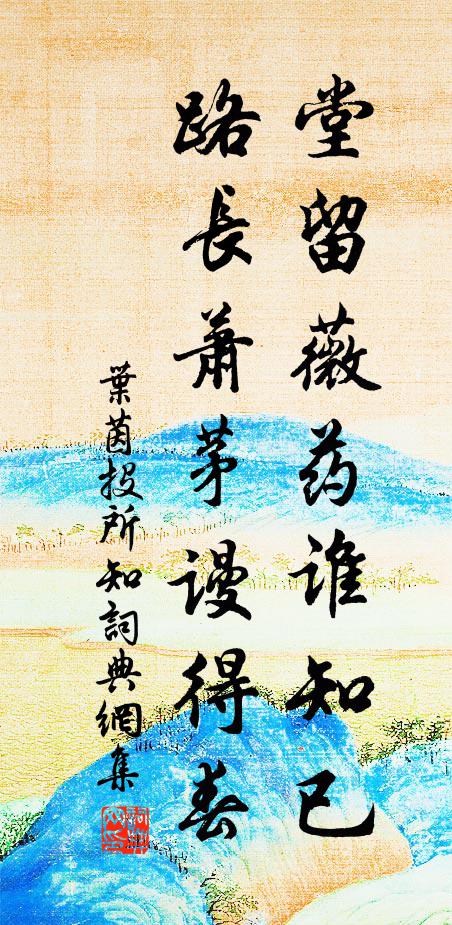 堂留薇药谁知已
路長蕭茅谩得春
葉茵投所知詞典網集